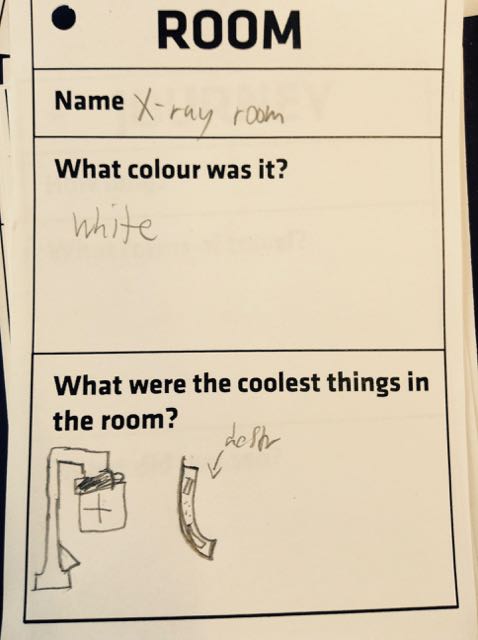 ROOM
Name X-ray room
What colour was it?
white
What were the coolest things in
the room?